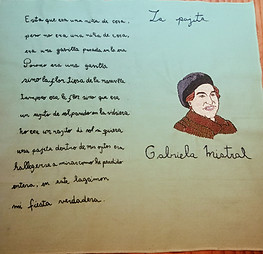 La pajita
Esta que era una niña de cera,
pero no era una niña de cera,
era una gavilla parada en la era.
Pero no era una gavilla
sino la flor tiesa de la maravilla.
Tampoco era la flor sino que era
un rayito de sol pegado en la vidriera
No era un rayito de sol siquiera
una pajita dentro de mis ojitos era
Alléguense a mirar como he perdido
entera, en este lagrimón
mi fiesta verdadera.
Gabriela Mistral